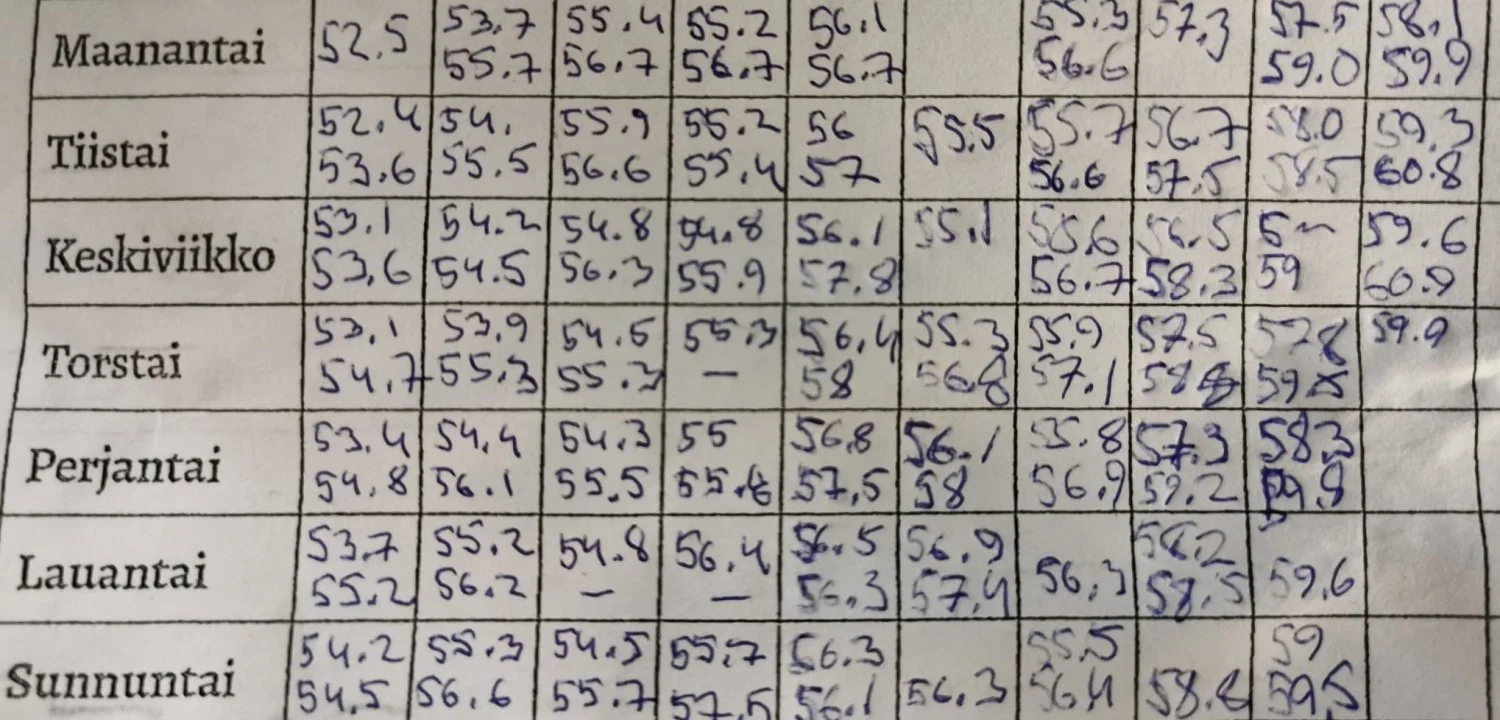 Maanantai 52.5 53.7 55.4 55.2 56.1 55.3 57.3 57.5 58.1
55.7 56.7 56.7 56.7 56.6 59.0 59.9
Tiistai 52.4 54. 55.9 55.2 56 55.5 55.7 56.7 58.0 59.3
53.6 55.5 56.6 55.4 57 56.6 57.5 58.5 60.8
Keskiviikko 53.1 54.2 54.8 54.8 56.1 55.1 55.6 56.5 59.6
53.6 54.5 56.3 55.9 57.8 56.7 58.3 59 60.9
Torstai 53.1 53.9 54.6 55.3 56.4 55.3 55.9 57.5 57.8 59.9
54.7 55.3 55.3 — 58 56.8 57.1
Perjantai 53.4 54.4 54.3 55 56.8 56.1 55.8 57.3 58.3
54.8 56.1 55.5 57.5 58 56.9 59.2
Lauantai 53.7 55.2 54.8 56.4 56.5 56.9 56.3 58.2 59.6
55.2 56.2 — — 56.3 57.4 58.5
Sunnuntai 54.2 55.3 54.5 55.7 56.3 55.5 59
54.5 56.6 55.7 57.5 56.1 56.3 56.4 59.5